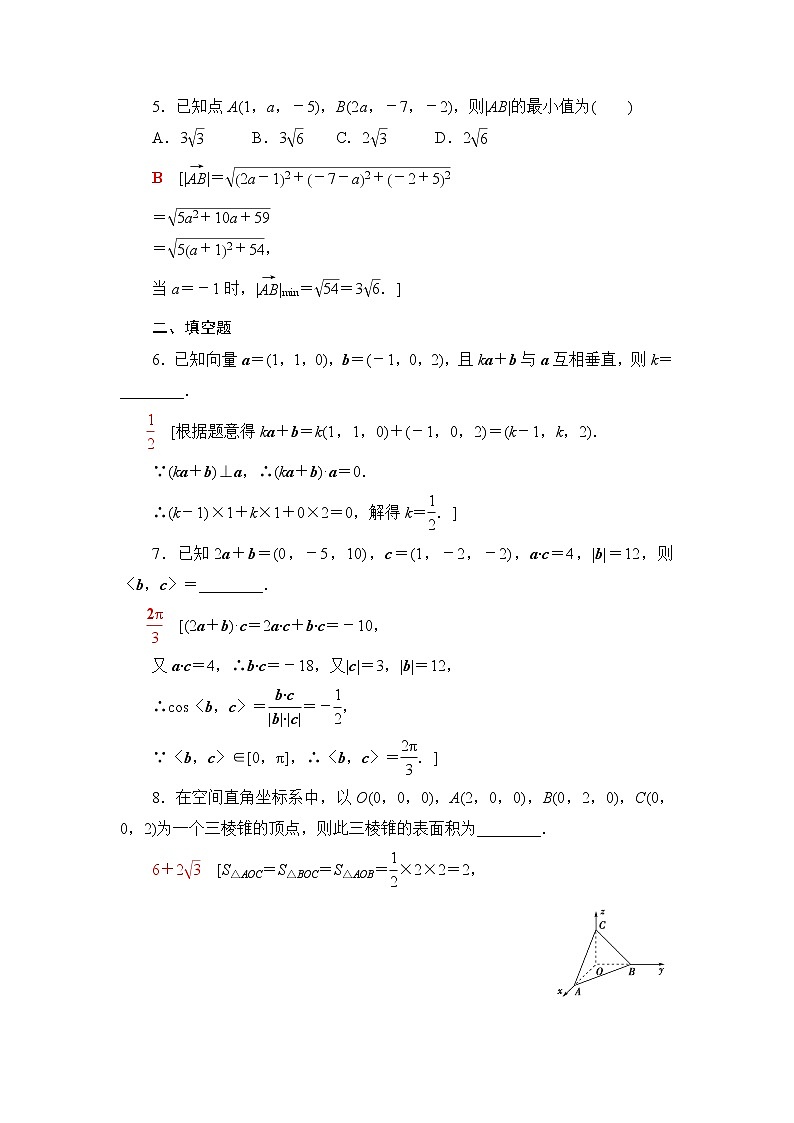 5.已知点A(1,a,-5),B(2a,-7,-2),则|AB|的最小值为(  )
A.3√3  B.3√6  C.2√3  D.2√6
B [|AB→|=√((2a-1)²+(-7-a)²+(-2+5)²)
=√(5a²+10a+59)
=√(5(a+1)²+54),
当a=-1时,|AB→|min=√54=3√6.]
二、填空题
6.已知向量a=(1,1,0),b=(-1,0,2),且ka+b与a互相垂直,则k=
________.
1/2 [根据题意得ka+b=k(1,1,0)+(-1,0,2)=(k-1,k,2).
∵(ka+b)⊥a,∴(ka+b)·a=0.
∴(k-1)×1+k×1+0×2=0,解得k=1/2.]
7.已知2a+b=(0,-5,10),c=(1,-2,-2),a·c=4,|b|=12,则
〈b,c〉=________.
2π/3 [(2a+b)·c=2a·c+b·c=-10,
又a·c=4,∴b·c=-18,又|c|=3,|b|=12,
∴cos〈b,c〉=b·c/|b|·|c|=-1/2,
∵〈b,c〉∈[0,π],∴〈b,c〉=2π/3.]
8.在空间直角坐标系中,以O(0,0,0),A(2,0,0),B(0,2,0),C(0,
0,2)为一个三棱锥的顶点,则此三棱锥的表面积为________.
6+2√3 [S△AOC=S△BOC=S△AOB=1/2×2×2=2,
z
C
O
B
y
x
A